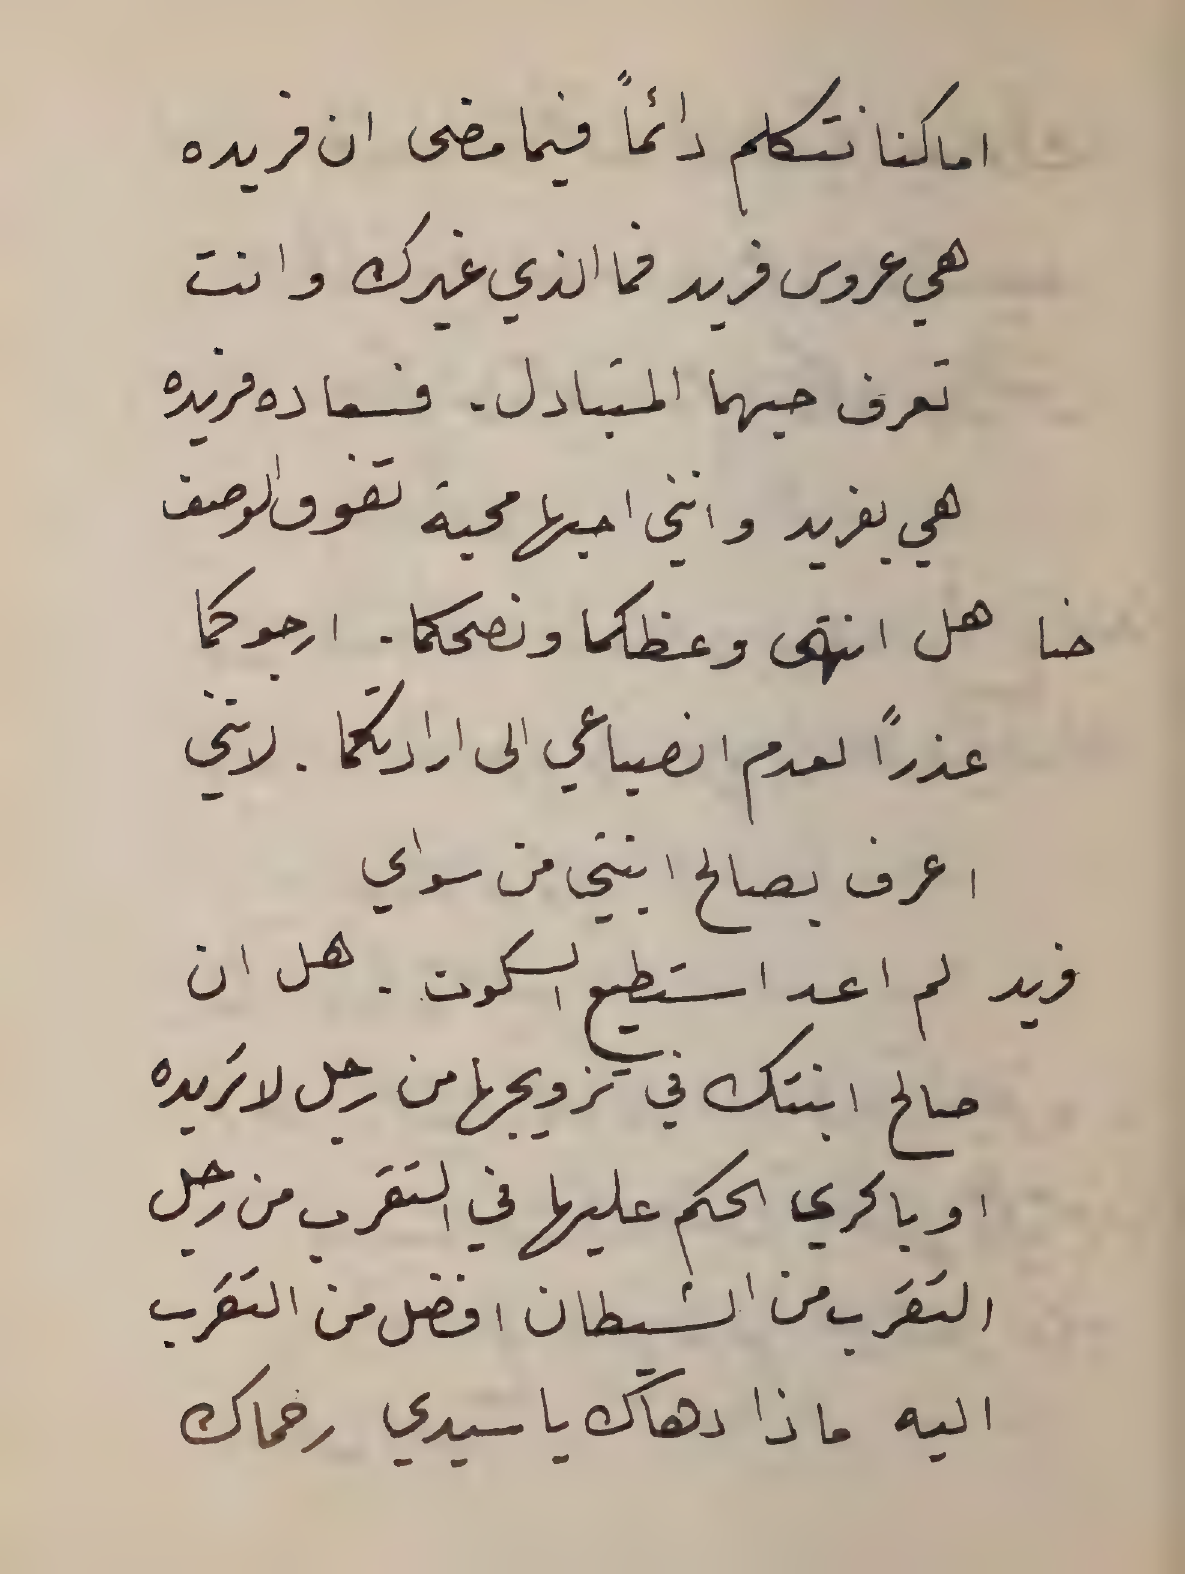 اما كنا نتكلم دائماً فيما مضى ان فريده
هي عروس فريد فما الذي غيرك وانت
تعرف حبهما المتبادل. فسعاده فريده
هي بفريد وانني احبها محبة تفوق الوصف
حنا هل انتهى وعظكما ونصحكما. ارجوكما
عذراً لعدم انصياعي الى ارادتكما. لانني
اعرف بصالح ابنتي من سواي
فريد لم اعد استطيع السكوت. هل ان
صالح ابنتك في تزويجها من رجل لا تريده
او بالحري الحكم عليها في التقرب من رجل
التقرب من الشيطان افضل من التقرب
اليه ماذا دهاك يا سيدي رحماك